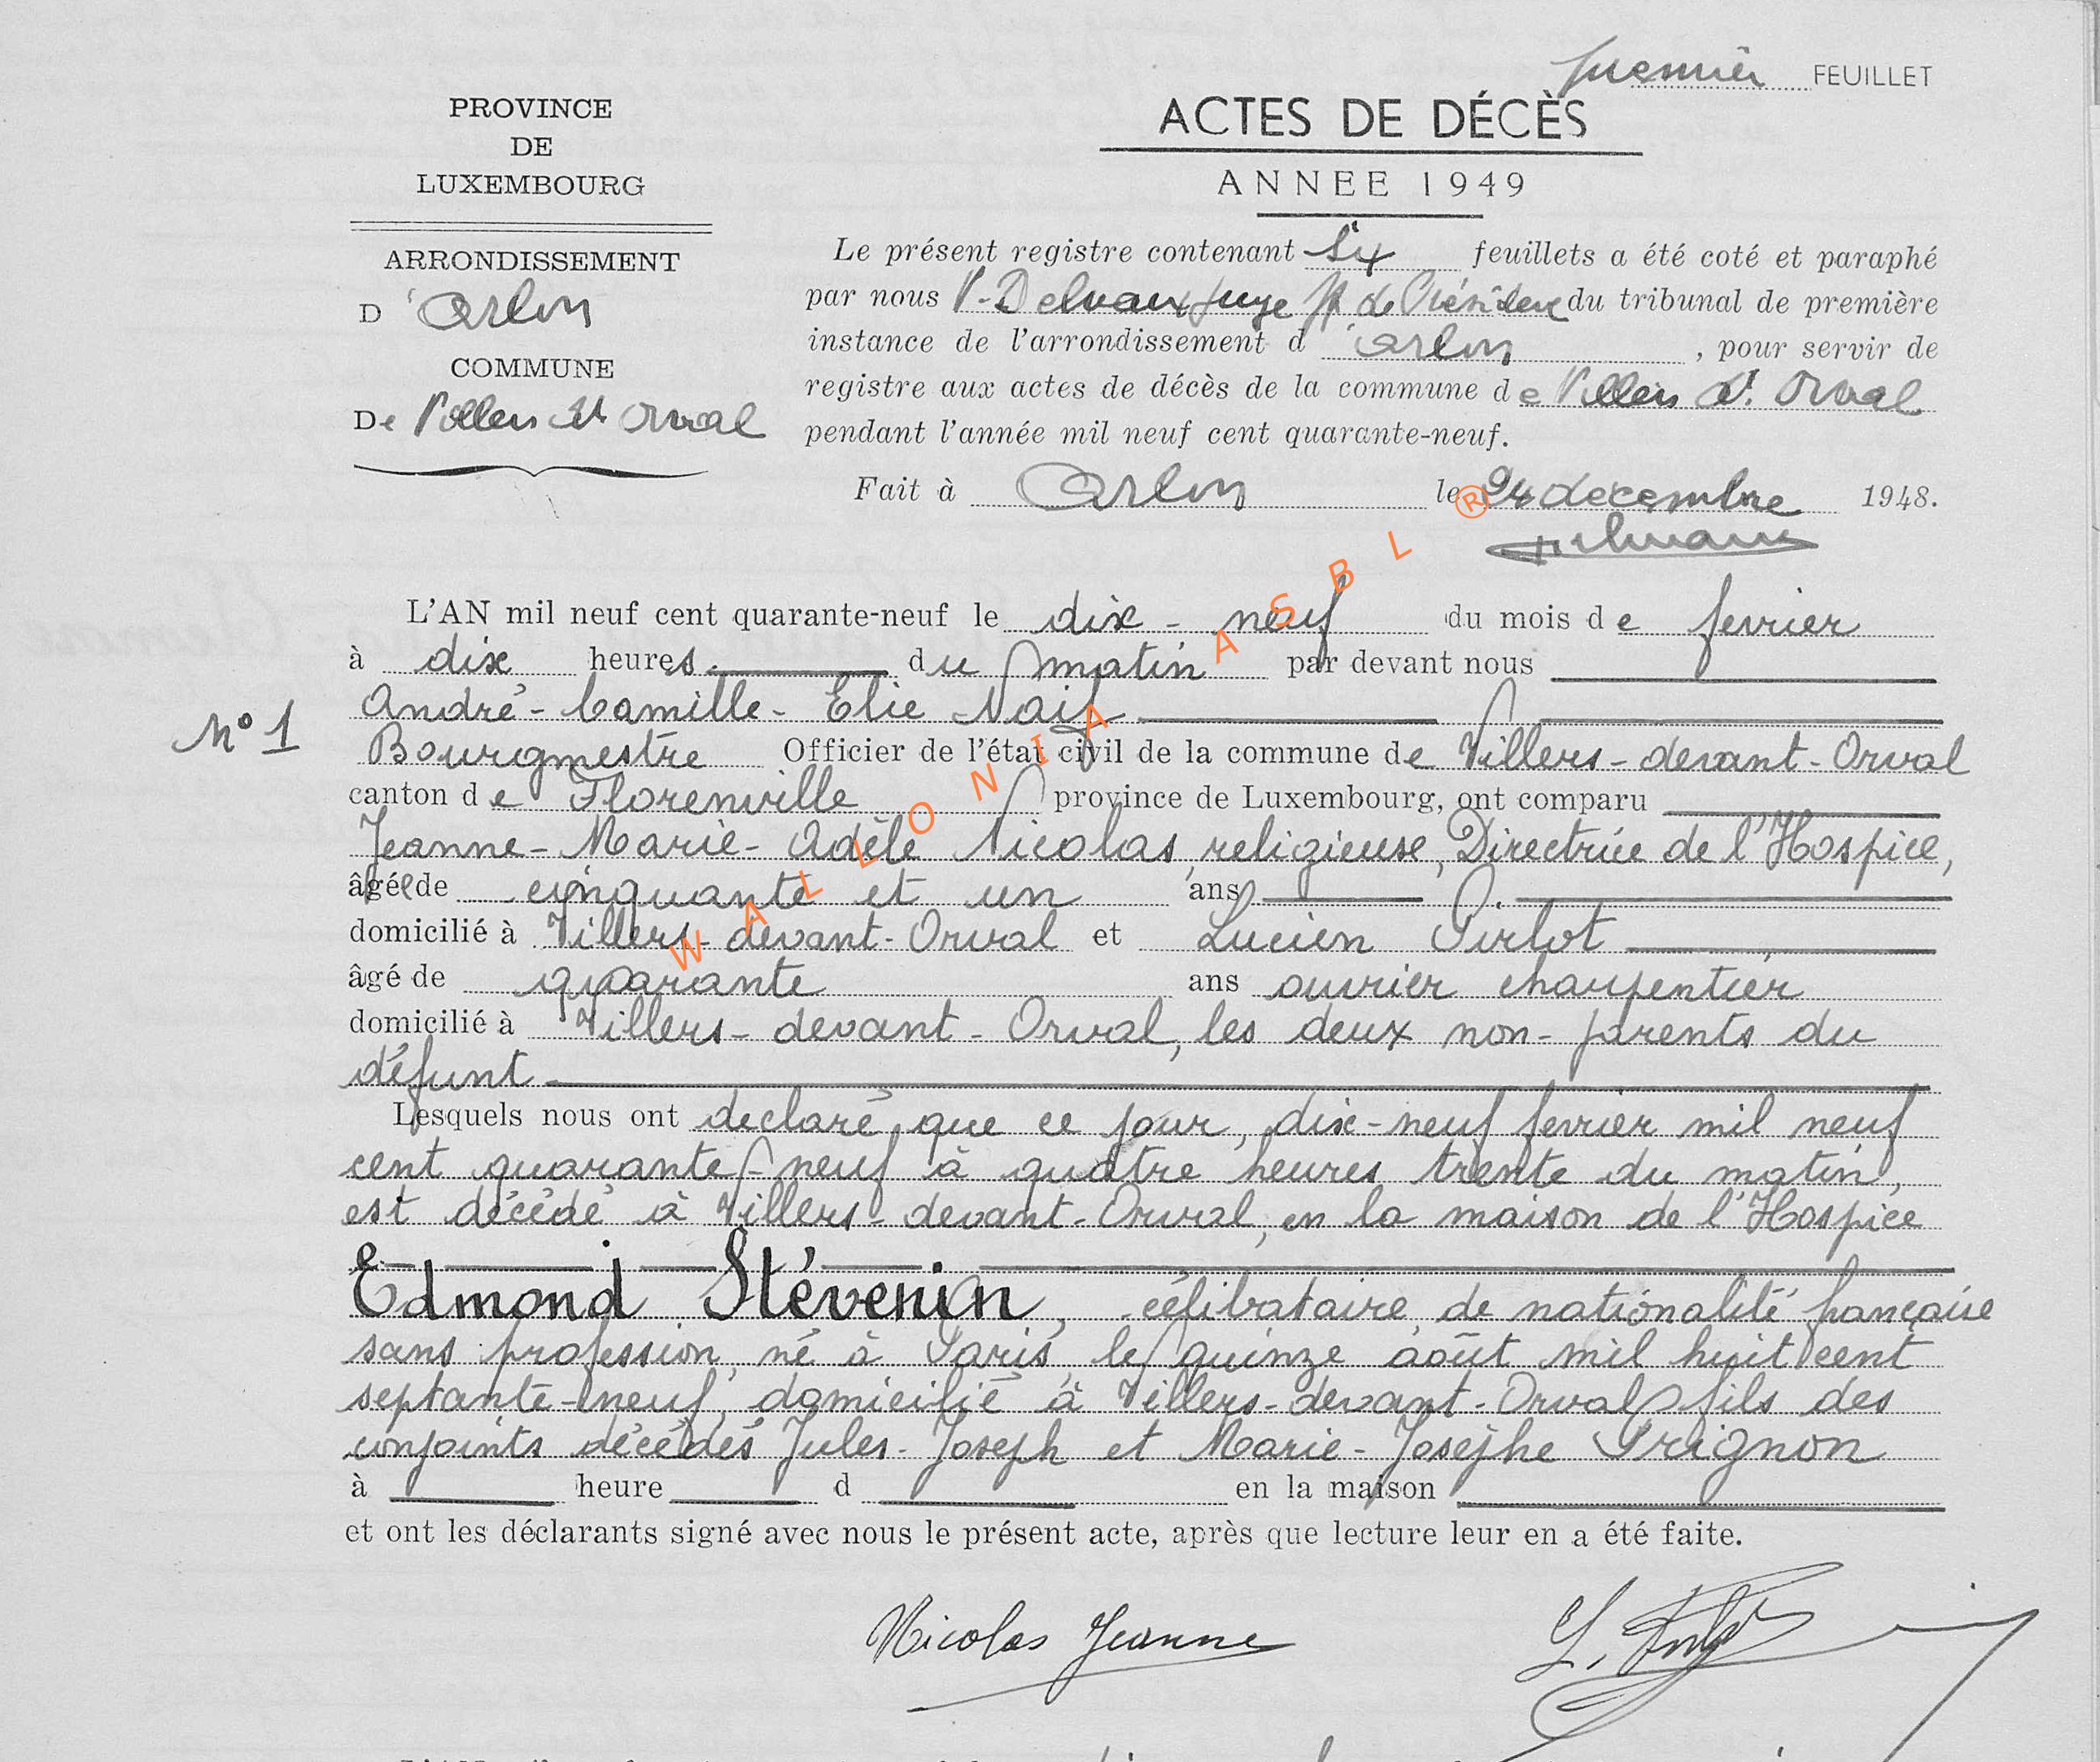 premier FEUILLET
PROVINCE
DE
LUXEMBOURG
ARRONDISSEMENT
D'Arlon
COMMUNE
De Villers dt Orval
ACTES DE DÉCÈS
ANNEE 1949
Le présent registre contenant six feuillets a été coté et paraphé
par nous V. Delvaux Juge ff de Président du tribunal de première
instance de l'arrondissement d'Arlon, pour servir de
registre aux actes de décès de la commune de Villers dt Orval
pendant l'année mil neuf cent quarante-neuf.
Fait à Arlon le 24 décembre 1948.
L'AN mil neuf cent quarante-neuf le dix-neuf du mois de fevrier
à dix heures du matin par devant nous
André-Camille-Elie Naif
N° 1
Bourgmestre Officier de l'état civil de la commune de Villers-devant-Orval
canton de Florenville province de Luxembourg, ont comparu
Jeanne-Marie-Adèle Nicolas, religieuse, Directrice de l'Hospice,
âgée de cinquante et un ans
domicilié à Villers-devant-Orval et Lucien Pirlot
âgé de quarante ans ouvrier charpentier
domicilié à Villers-devant-Orval, les deux non-parents du
défunt
Lesquels nous ont declaré que ce jour, dix-neuf fevrier mil neuf
cent quarante-neuf à quatre heures trente du matin,
est décédé à Villers-devant-Orval, en la maison de l'Hospice
Edmond Stévenin, célibataire, de nationalité française
sans profession, né à Paris, le quinze août mil huit cent
septante-neuf, domicilié à Villers-devant-Orval, fils des
conjoints décédés Jules-Joseph et Marie-Josèphe Prignon
à heure d en la maison
et ont les déclarants signé avec nous le présent acte, après que lecture leur en a été faite.
Nicolas Jeanne
WALLONIA ASBL ®